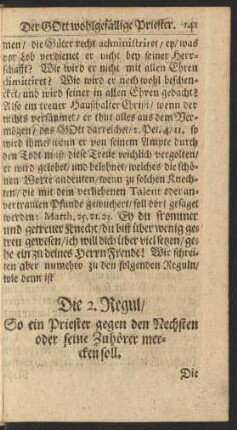 Der GOtt wohlgefällige Priester. 141
men / die Güter recht administriret / ey / was
vor Lob verdienet er nicht bey seiner Herr-
schafft? Wie wird er nicht mit allen Ehren
dimittiret? Wie wird er noch wohl beschen-
cket / und wird seiner in allen Ehren gedacht?
Also ein treuer Haußhalter Christi / wenn der
nichts versäumet / er thut alles aus dem Ver-
mögen / das GOtt darreichet / 1. Pet. 4 / 11. so
wird ihme / wenn er von seinem Ampte durch
den Todt diese Treue reichlich vergolten /
er wird gelobet / und belohnet / welches die schö-
nen Worte andeuten / wenn zu solchen Knech-
ten / die mit dem verliehenen Talent oder an-
vertrauten Pfunde gewuchert / soll dort gesaget
werden: Matth. 25. 21. 23. Ey du frommer
und getreuer Knecht / du bist über wenig ge-
treu gewesen / ich will dich über viel setzen / ge-
he ein zu deines Herrn Freude! Wir schrei-
ten aber nunmehro zu den folgenden Reguln /
wie denn ist
Die 2. Regul /
So ein Priester gegen den Nechsten
oder seine Zuhörer mer-
cken soll.
Die